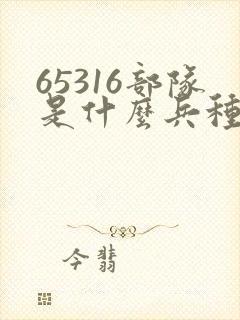 65316部隊
是什麼兵種
今翡